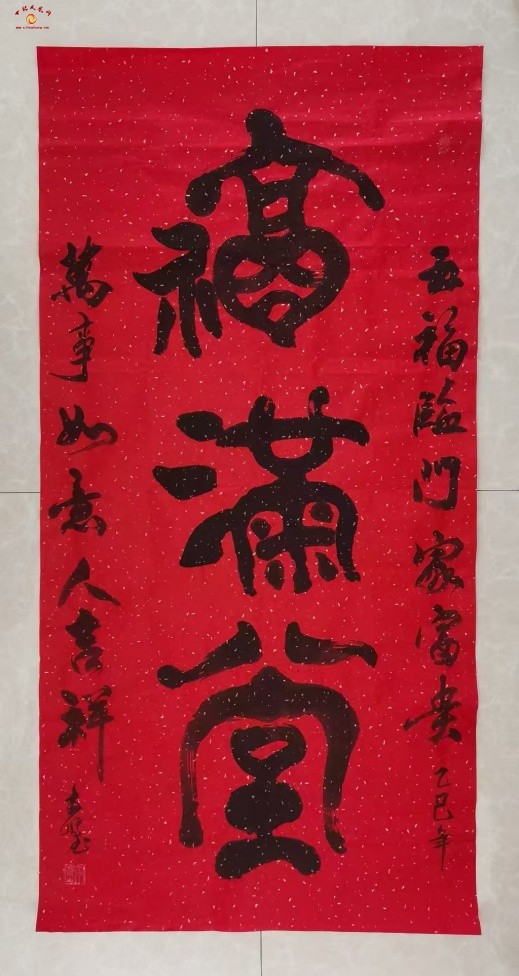 福满堂
五福臨門家富贵
乙巳年
萬事如意人吉祥